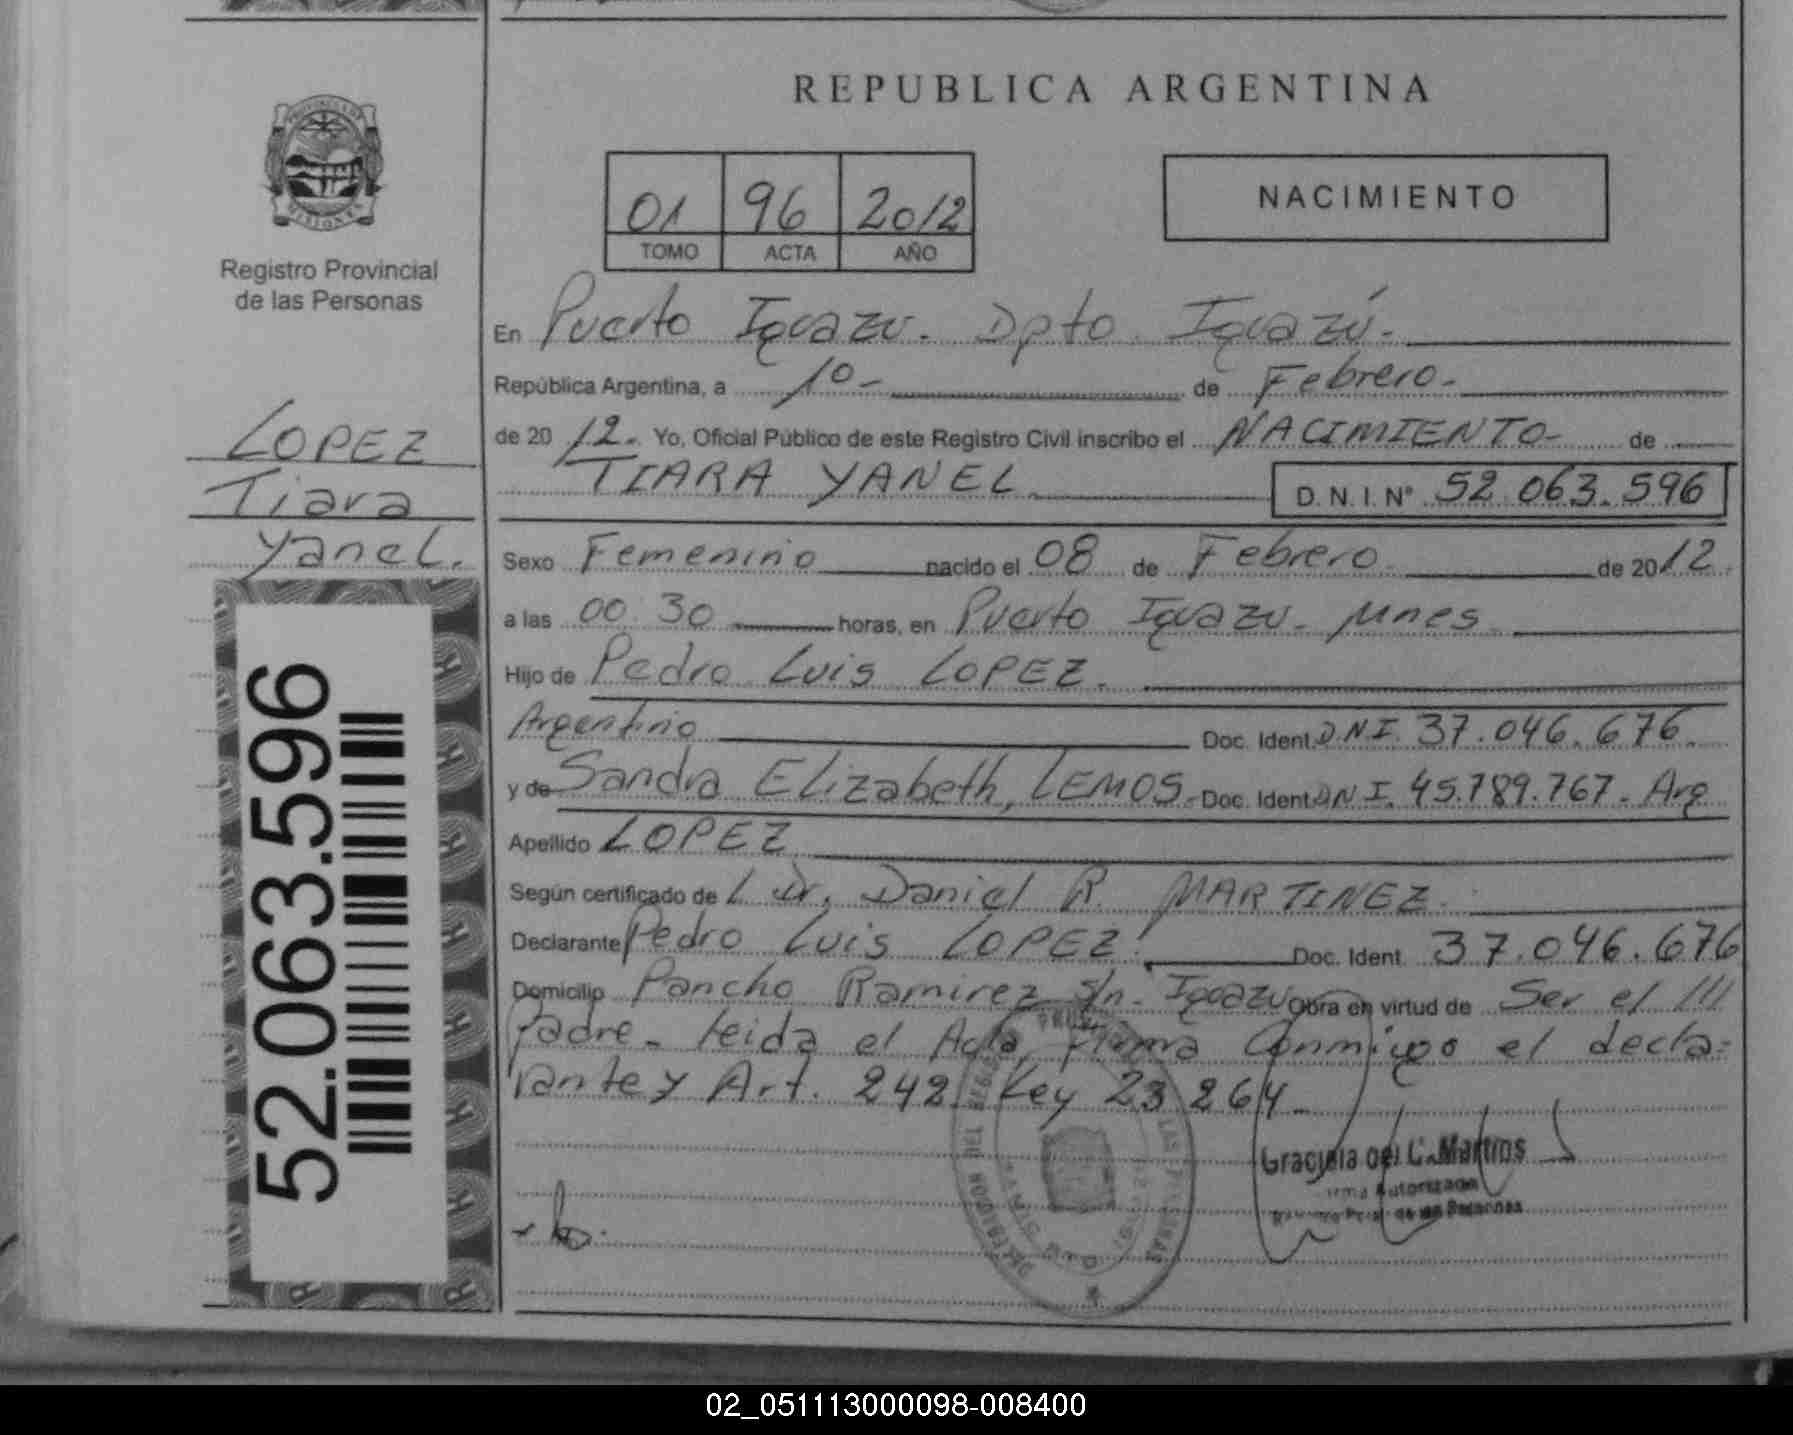 REPUBLICA ARGENTINA
01 96 2012
TOMO ACTA AÑO
NACIMIENTO
Registro Provincial
de las Personas
LOPEZ
Tiara
Yanel.
52.063.596
En Puerto Iguazu. Dpto. Iguazú.
República Argentina, a 10- de Febrero.
de 20 12. Yo, Oficial Público de este Registro Civil inscribo el NACIMIENTO- de
TIARA YANEL D.N.I. N° 52.063.596
Sexo Femenino nacido el 08 de Febrero de 2012
a las 00:30 horas, en Puerto Iguazu. Mnes.
Hijo de Pedro Luis LOPEZ.
Argentino Doc. Ident. DNI. 37.046.676.
y de Sandra Elizabeth, LEMOS. Doc. Ident. DNI. 45.789.767. Arg
Apellido LOPEZ
Según certificado de L Dr. Daniel R. MARTINEZ.
Declarante Pedro Luis LOPEZ. Doc. Ident. 37.046.676
Domicilio Pancho Ramirez s/n. Iguazu Obra en virtud de Ser el ///
Padre. Leida el Acta, firma Conmigo el decla-
rante y Art. 242. Ley 23264.
Graciela del C. Martins
Firma Autorizada
de las Personas
02_051113000098-008400